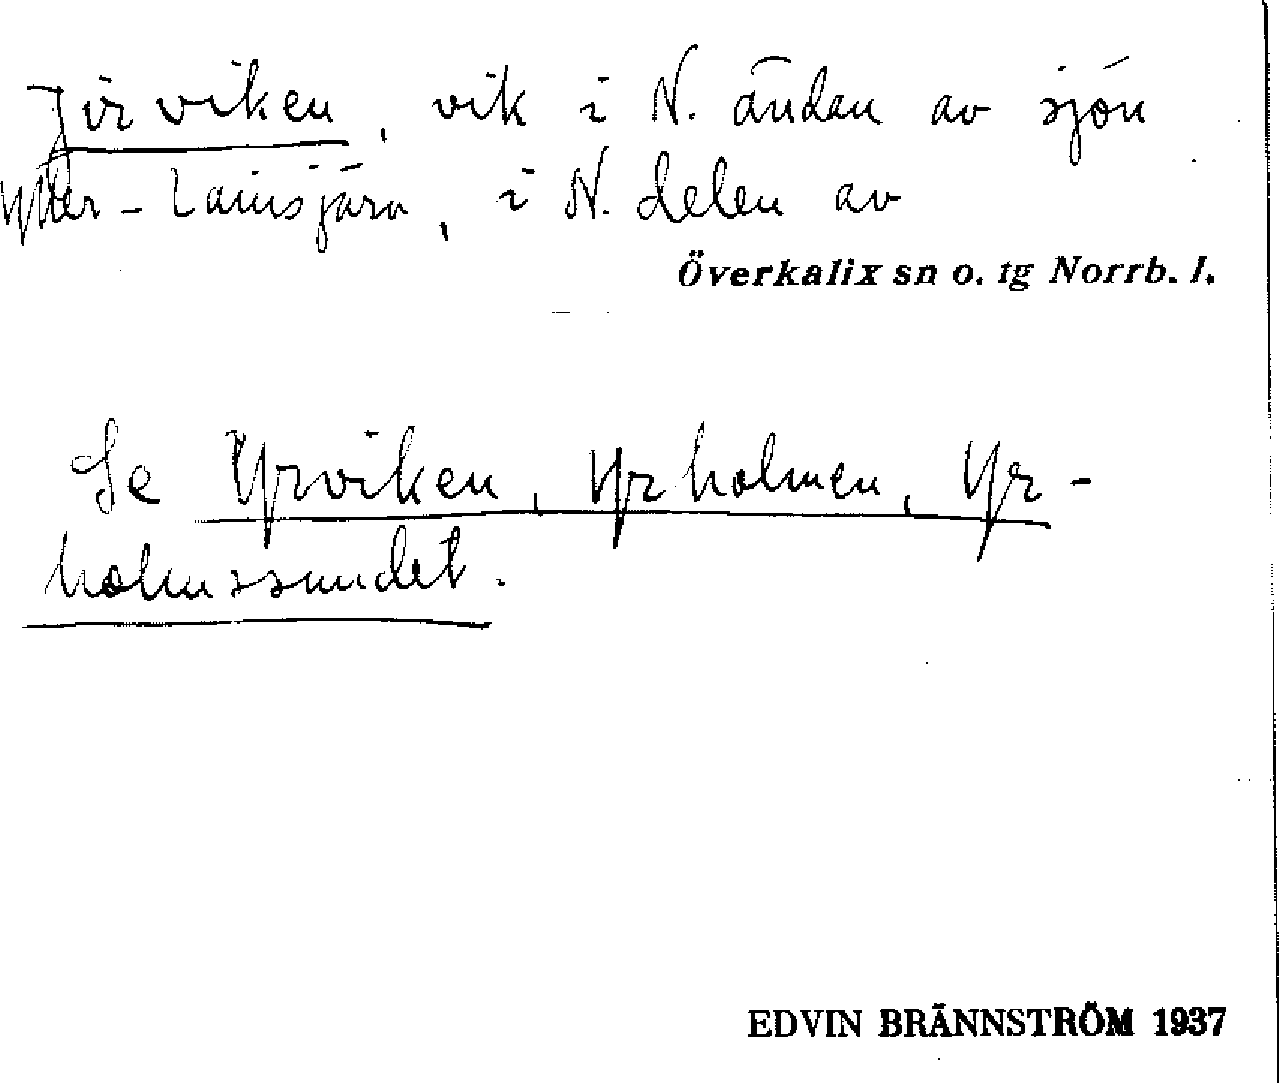 Jirviken, vik i N. ändan av sjön
Ytter-Lainsjärv, i N. delen av
Överkalix sn o. tg Norrb. l.
Se Yrviken, Yrholmen, Yr-
holmssundet.
EDVIN BRÄNNSTRÖM 1937